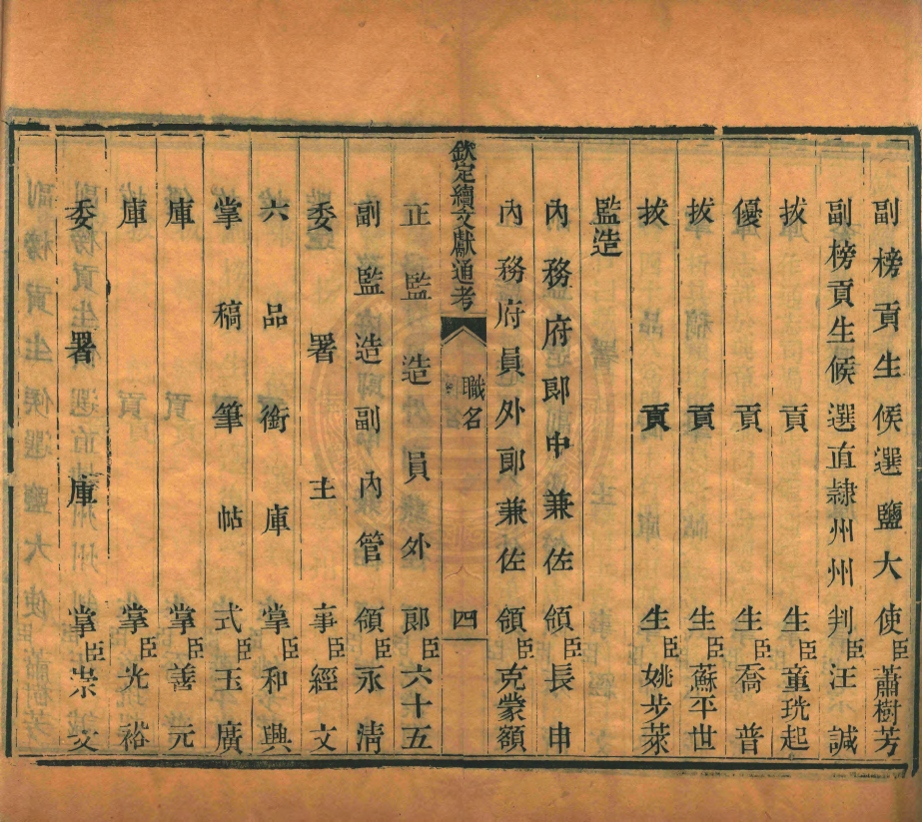 副榜貢生候選鹽大使臣蕭樹芳
副榜貢生候選直隷州州判臣汪誠
拔貢生臣童珖起
優貢生臣喬普
拔貢生臣蘇平世
拔貢生臣姚步萊
監造
內務府郎中兼佐領臣長申
內務府員外郎兼佐領臣克蒙額
欽定續文獻通考
職名
四
正監造員外郎臣六十五
副監造副內管領臣永清
委署主事臣經文
六品銜庫掌臣和興
掌稿筆帖式臣玉廣
庫掌臣善元
庫掌臣光裕
委署庫掌臣崇文